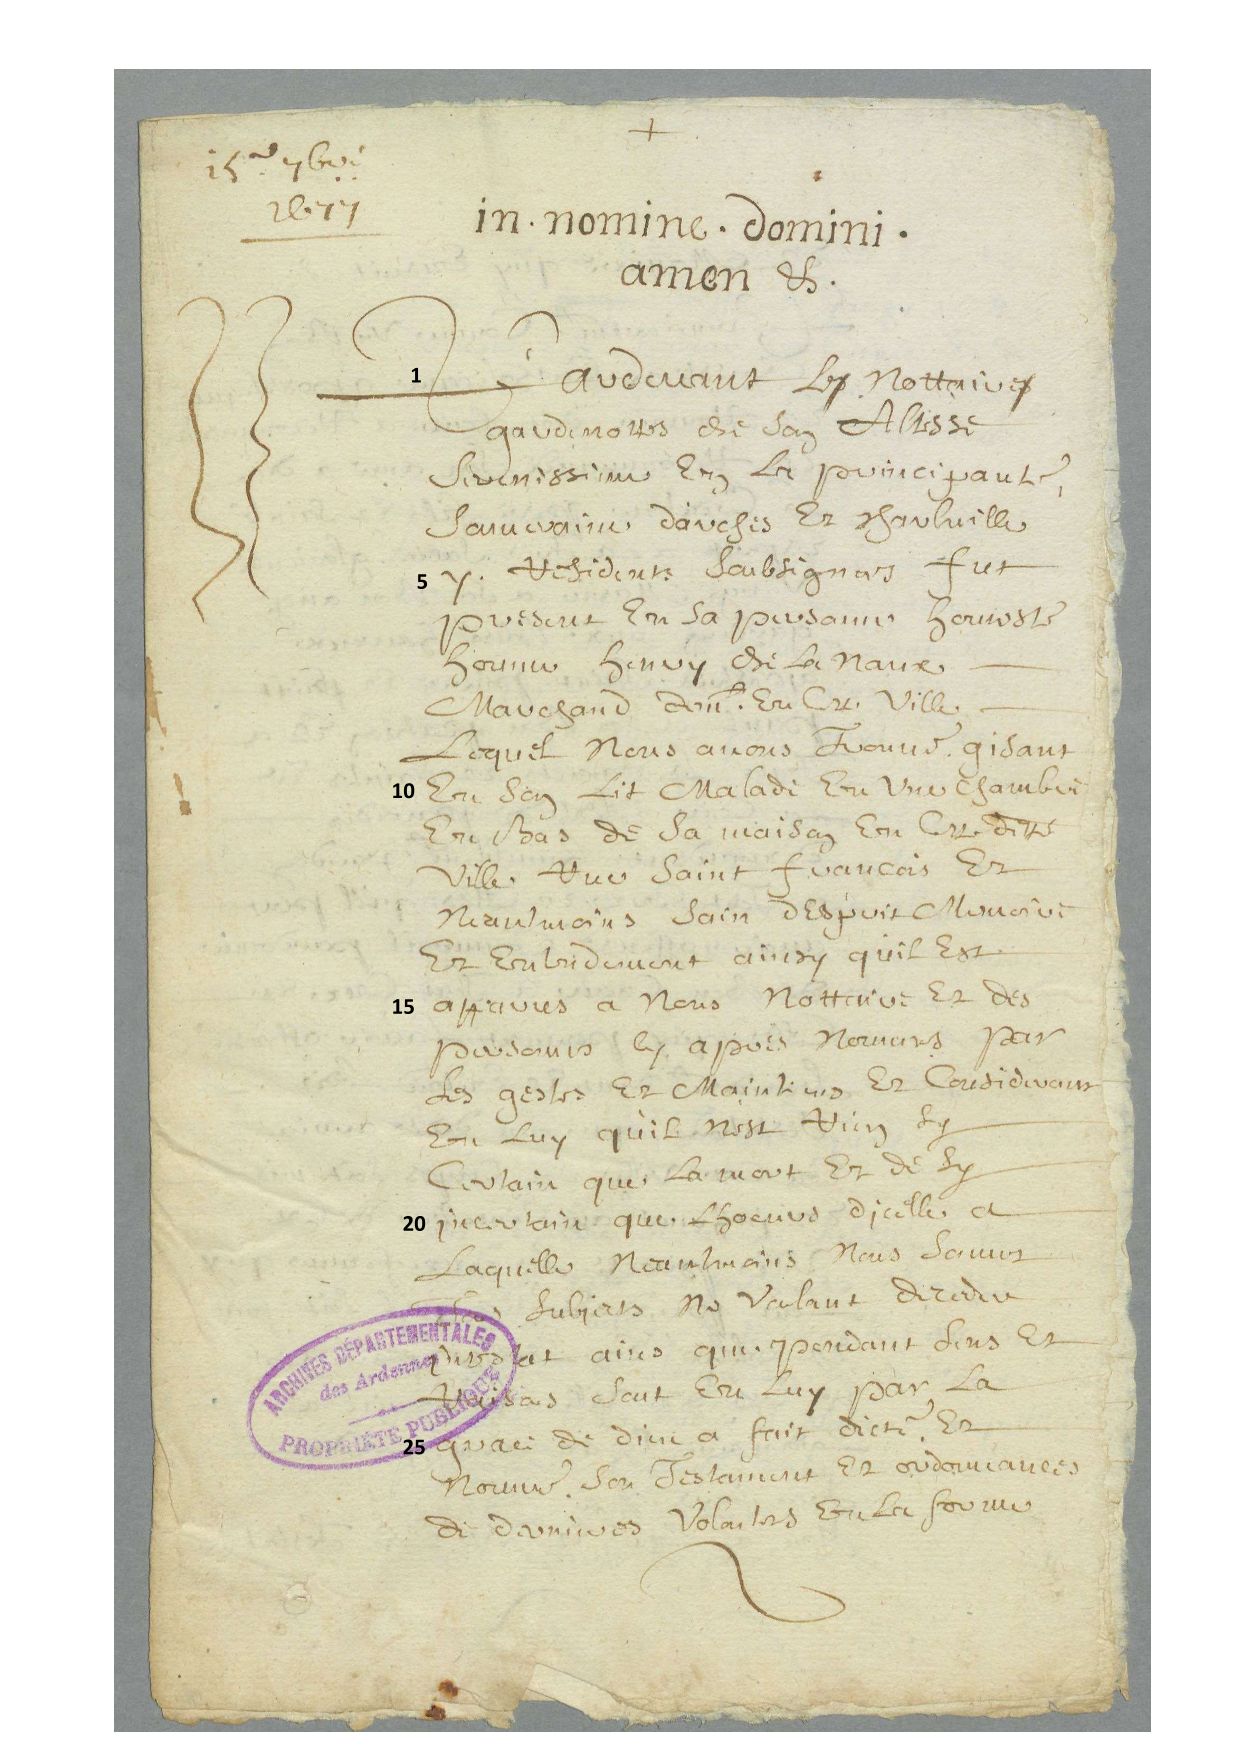 +
15.e 7bre
1677
in . nomine . domini .
amen &.
1 Pardevant les Nottaires
gardenottes de son Altesse
Serenissime En la principauté
Souveraine d'arches Et charleville
5 y. Residents soubsignez fut
present En sa personne honneste
homme henry de la Naux
Marchand dom.t En Cette Ville
Lequel Nous avons Trouvé gisant
10 En son Lit Malade En Une chambre
En bas de sa maison En Cette ditte
Ville Rue Saint francois Et
Neantmoins sain dEsprit Memoire
Et Entendement ainsy qu'il Est
15 apparus a Nous Nottaire Et des
personnes cy apres Nommez par
Ses gestes Et Maintiens Et Considerant
En Luy qu'il N'est Rien sy
Certain que La mort Et de sy
20 jncertain que Lhoeure djcelle a
Laquelle Neantmoins Nous sommes
tous subjects Ne Voulant deceder
intestat ains que pendant sens Et
Raison sont En Luy par La
25 grace de dieu a fait dicté Et
Nommé son Testament Et ordonnances
de dernieres Volontez En La forme
ARCHIVES DÉPARTEMENTALES
des Ardennes
PROPRIÉTÉ PUBLIQUE